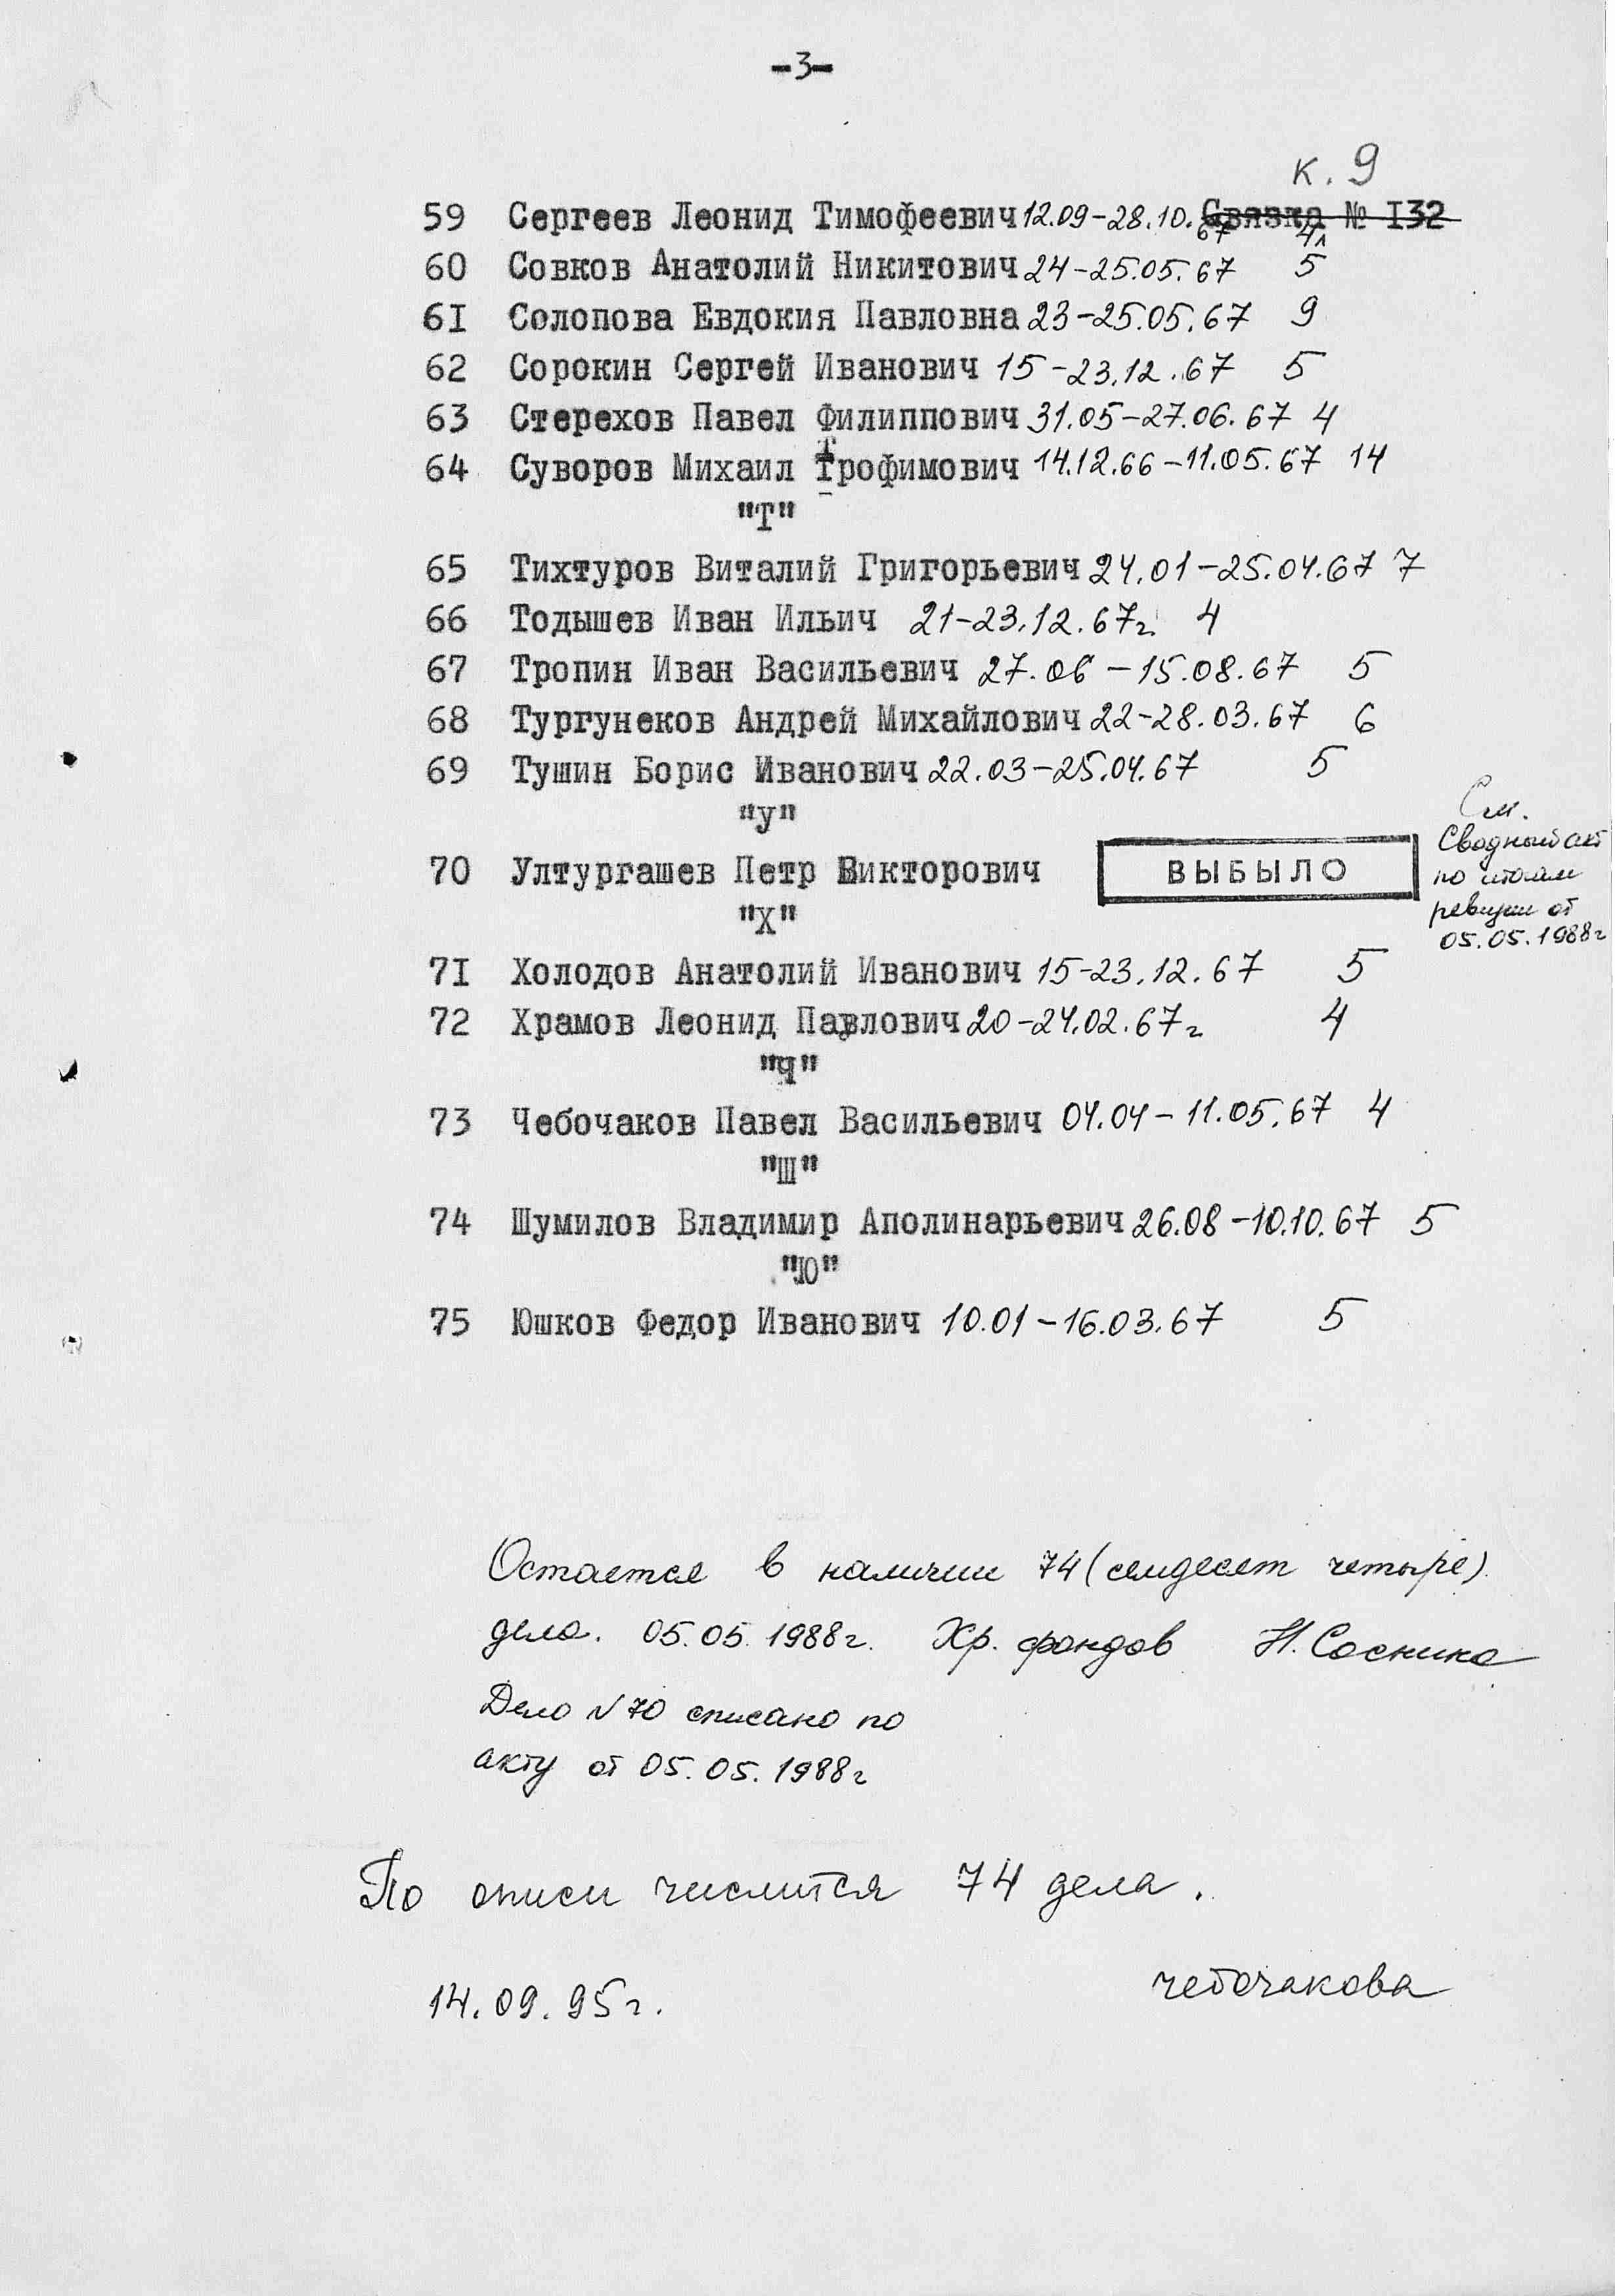 -3-
к. 9
59 Сергеев Леонид Тимофеевич 12.09-28.10.67 Связка № I32 4л
60 Совков Анатолий Никитович 24-25.05.67 5
6I Солопова Евдокия Павловна 23-25.05.67 9
62 Сорокин Сергей Иванович 15-23.12.67 5
63 Стерехов Павел Филиппович 31.05-27.06.67 4
64 Суворов Михаил Трофимович 14.12.66-11.05.67 14
"Т"
65 Тихтуров Виталий Григорьевич 24.01-25.04.67 7
66 Тодышев Иван Ильич 21-23.12.67г. 4
67 Тропин Иван Васильевич 27.06-15.08.67 5
68 Тургунеков Андрей Михайлович 22-28.03.67 6
69 Тушин Борис Иванович 22.03-25.04.67 5
"У"
70 Ултургашев Петр Викторович ВЫБЫЛО
См.
Сводный акт
по итогам
ревизии от
05.05.1988г
"Х"
7I Холодов Анатолий Иванович 15-23.12.67 5
72 Храмов Леонид Павлович 20-24.02.67г 4
"Ч"
73 Чебочаков Павел Васильевич 04.04-11.05.67 4
"Ш"
74 Шумилов Владимир Аполинарьевич 26.08-10.10.67 5
"Ю"
75 Юшков Федор Иванович 10.01-16.03.67 5
Остается в наличии 74 (семдесят четыре)
дела. 05.05.1988г. Хр. фондов Н. Соснина
Дело N 70 списано по
акту от 05.05.1988г
По описи числится 74 дела.
чебочакова
14.09.95г.